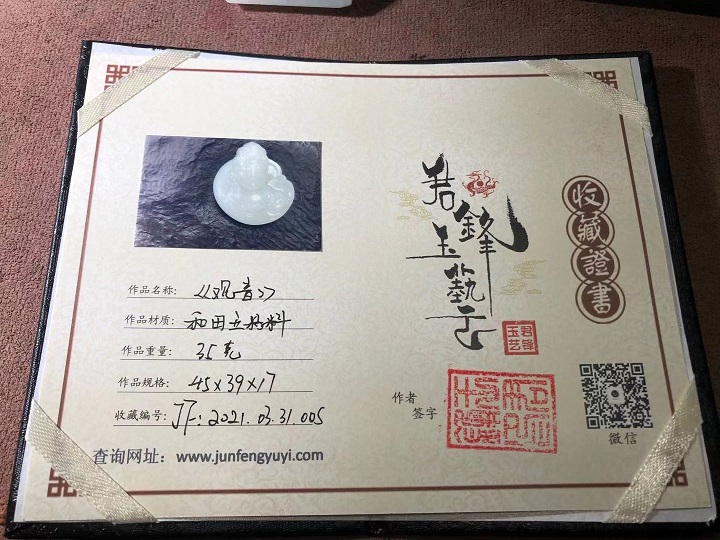 作品名称：《观音》
作品材质：和田玉籽料
作品重量：35克
作品规格：45x39x17
收藏编号：JF：2021.03.31.005
查询网址：www.junfengyuyi.com
君鋒玉藝
君锋玉艺
作者
签字
收藏證書
微信